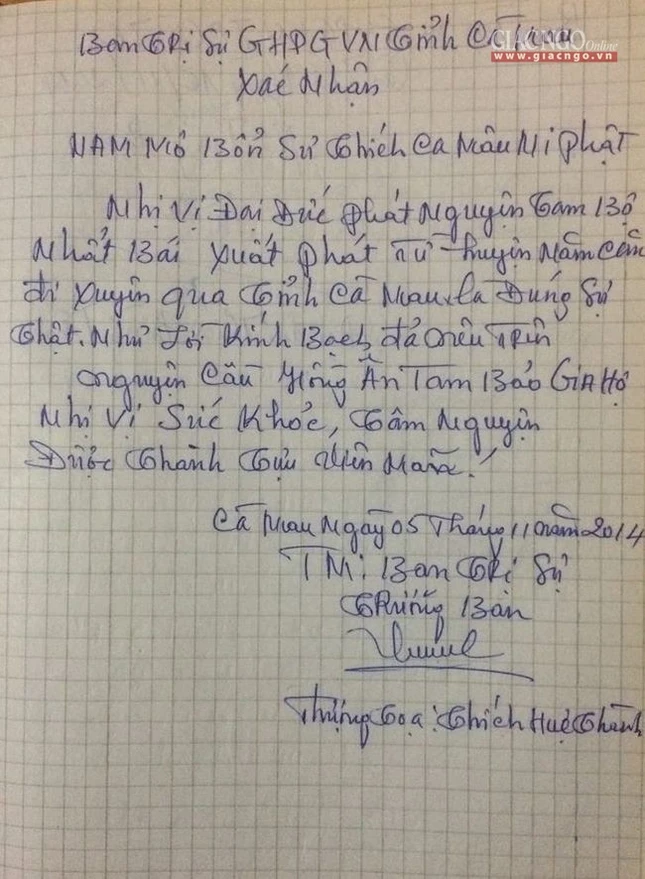 Ban Trị Sự GHPGVN Tỉnh Cà Mau
GIÁC NGỘ Online
www.giacngo.vn
Xác Nhận
NAM MÔ Bổn Sư Thích Ca Mâu Ni Phật
Nhị Vị Đại Đức phát Nguyện Tam Bộ
Nhất Bái xuất phát từ huyện Năm Căn
đi xuyên qua Tỉnh Cà Mau, là Đúng Sự
Thật. Như Lời Kính Bạch đã nêu trên
nguyện Cầu Hồng Ân Tam Bảo GIA Hộ
Nhị Vị Sức Khỏe, Tâm Nguyện
Được Thành Tựu Viên Mãn!
Cà Mau Ngày 05 Tháng 11 năm 2014
TM: Ban Trị Sự
Trưởng Ban
Thượng Tọa: Thích Huệ Thành